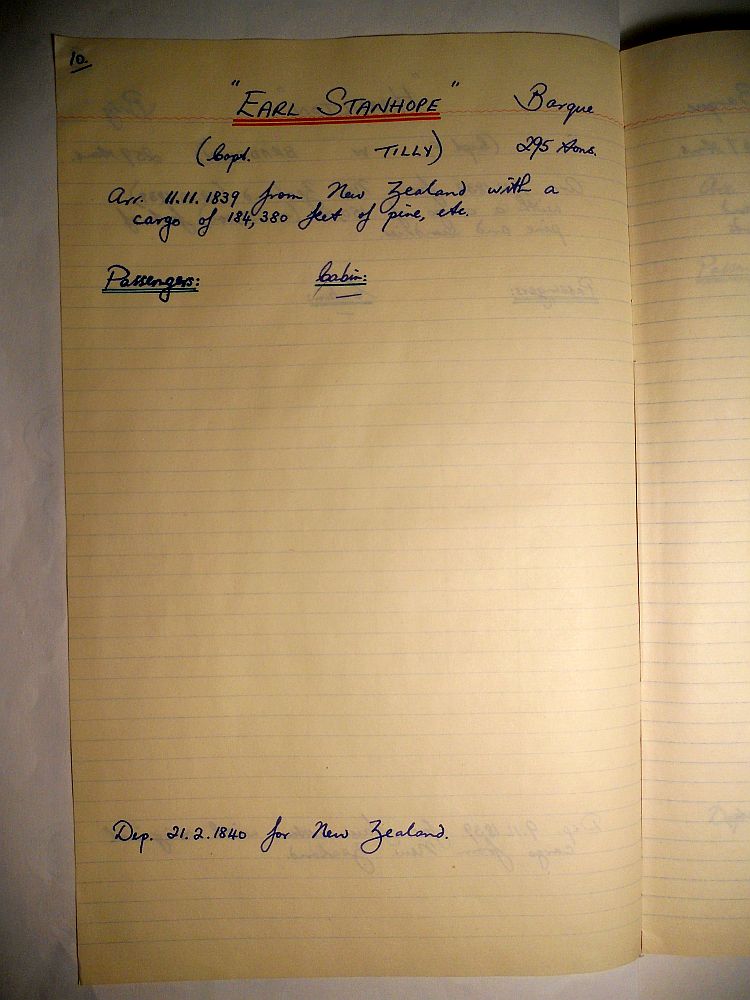 10.
"EARL STANHOPE" Barque
(Capt. TILLY) 295 tons.
Arr. 11.11.1839 from New Zealand with a
cargo of 184,380 feet of pine, etc.
Passengers: Cabin:
Dep. 21.2.1840 for New Zealand.